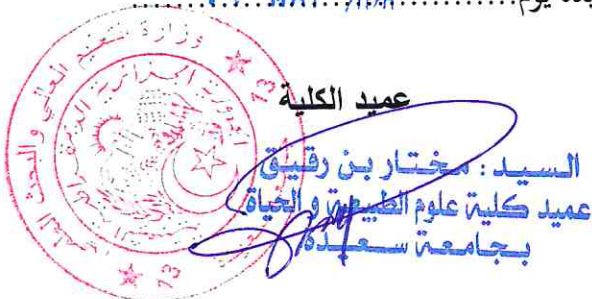 يوم
عميد الكلية
السيد : مختار بن رقيق
عميد كلية علوم الطبيعة و الحياة
بجامعة سعيدة
وزارة التعليم العالي والبحث العلمي
الجمهورية الجزائرية الديمقراطية
73
73